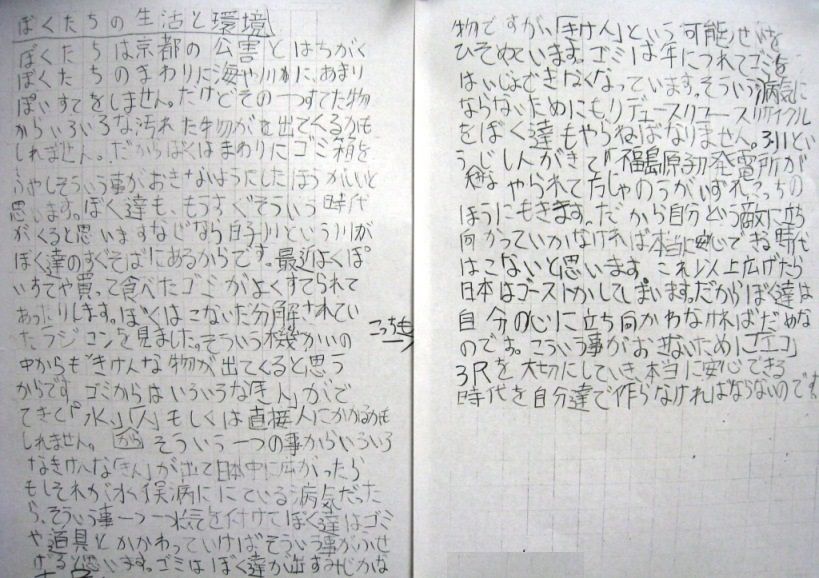 ぼくたちの生活と環境
ぼくたちは京都の公害とはちがく
ぼくたちのまわりに海や川に、あまり
ぽいすてをしません。だけどその一つすてた物
からいろいろな汚れた物がを出てくるかも
しれません。だからぼくはまわりにゴミ箱を
ふやしそういう事がおきないようにしたほうがいいと
思います。ぼく達も、もうすぐそういう時代
がくると思いますなぜなら白子川という川が
ぼく達のすぐそばにあるからです。最近はぽ
いすてや買って食べたゴミがよくすてられて
あったりします。ぼくはこないだ分解されてい
たラジコンを見ました。そういう機かいの
こっちも
中からもきけんな物が出てくると思う
からです。ゴミからはいろいろな「きん」がで
てきて「水」「人」もしくは直接人にかかるかも
しれません。からそういう一つの事からいろいろ
なきけんな「きん」が出て日本中に広がったら
もしそれが水俣病ににている病気だった
ら、そういう事一つ一つ気を付けてぼく達はゴミ
や道具とかかわっていけばそういう事がふせ
げると思います。ゴミはぼく達が出すみじかな
物ですがい「きけん」という可能せいを
ひそめています。ゴミは年につれてゴミを
はいじょできなくなっています。そういう病気に
ならないためにもリデュースリユースリサイクル
をぼく達もやらねばなりません。3.11とい
うじしんがきて「福島原子力発電所が
やられてたしゃのうがいずれこっちの
ほうにもきます。だから自分という敵に立ち
向かっていかなければ本当に安心できる時代
はこないと思います。これ以上広げたら
日本はゴーストかしてしまいます。だからぼく達は
自分の心に立ち向かわなければだめな
のです。こういう事がおきないために「エコ」
3Rを大切にしていき本当に安心できる
時代を自分達で作らなければならないのです